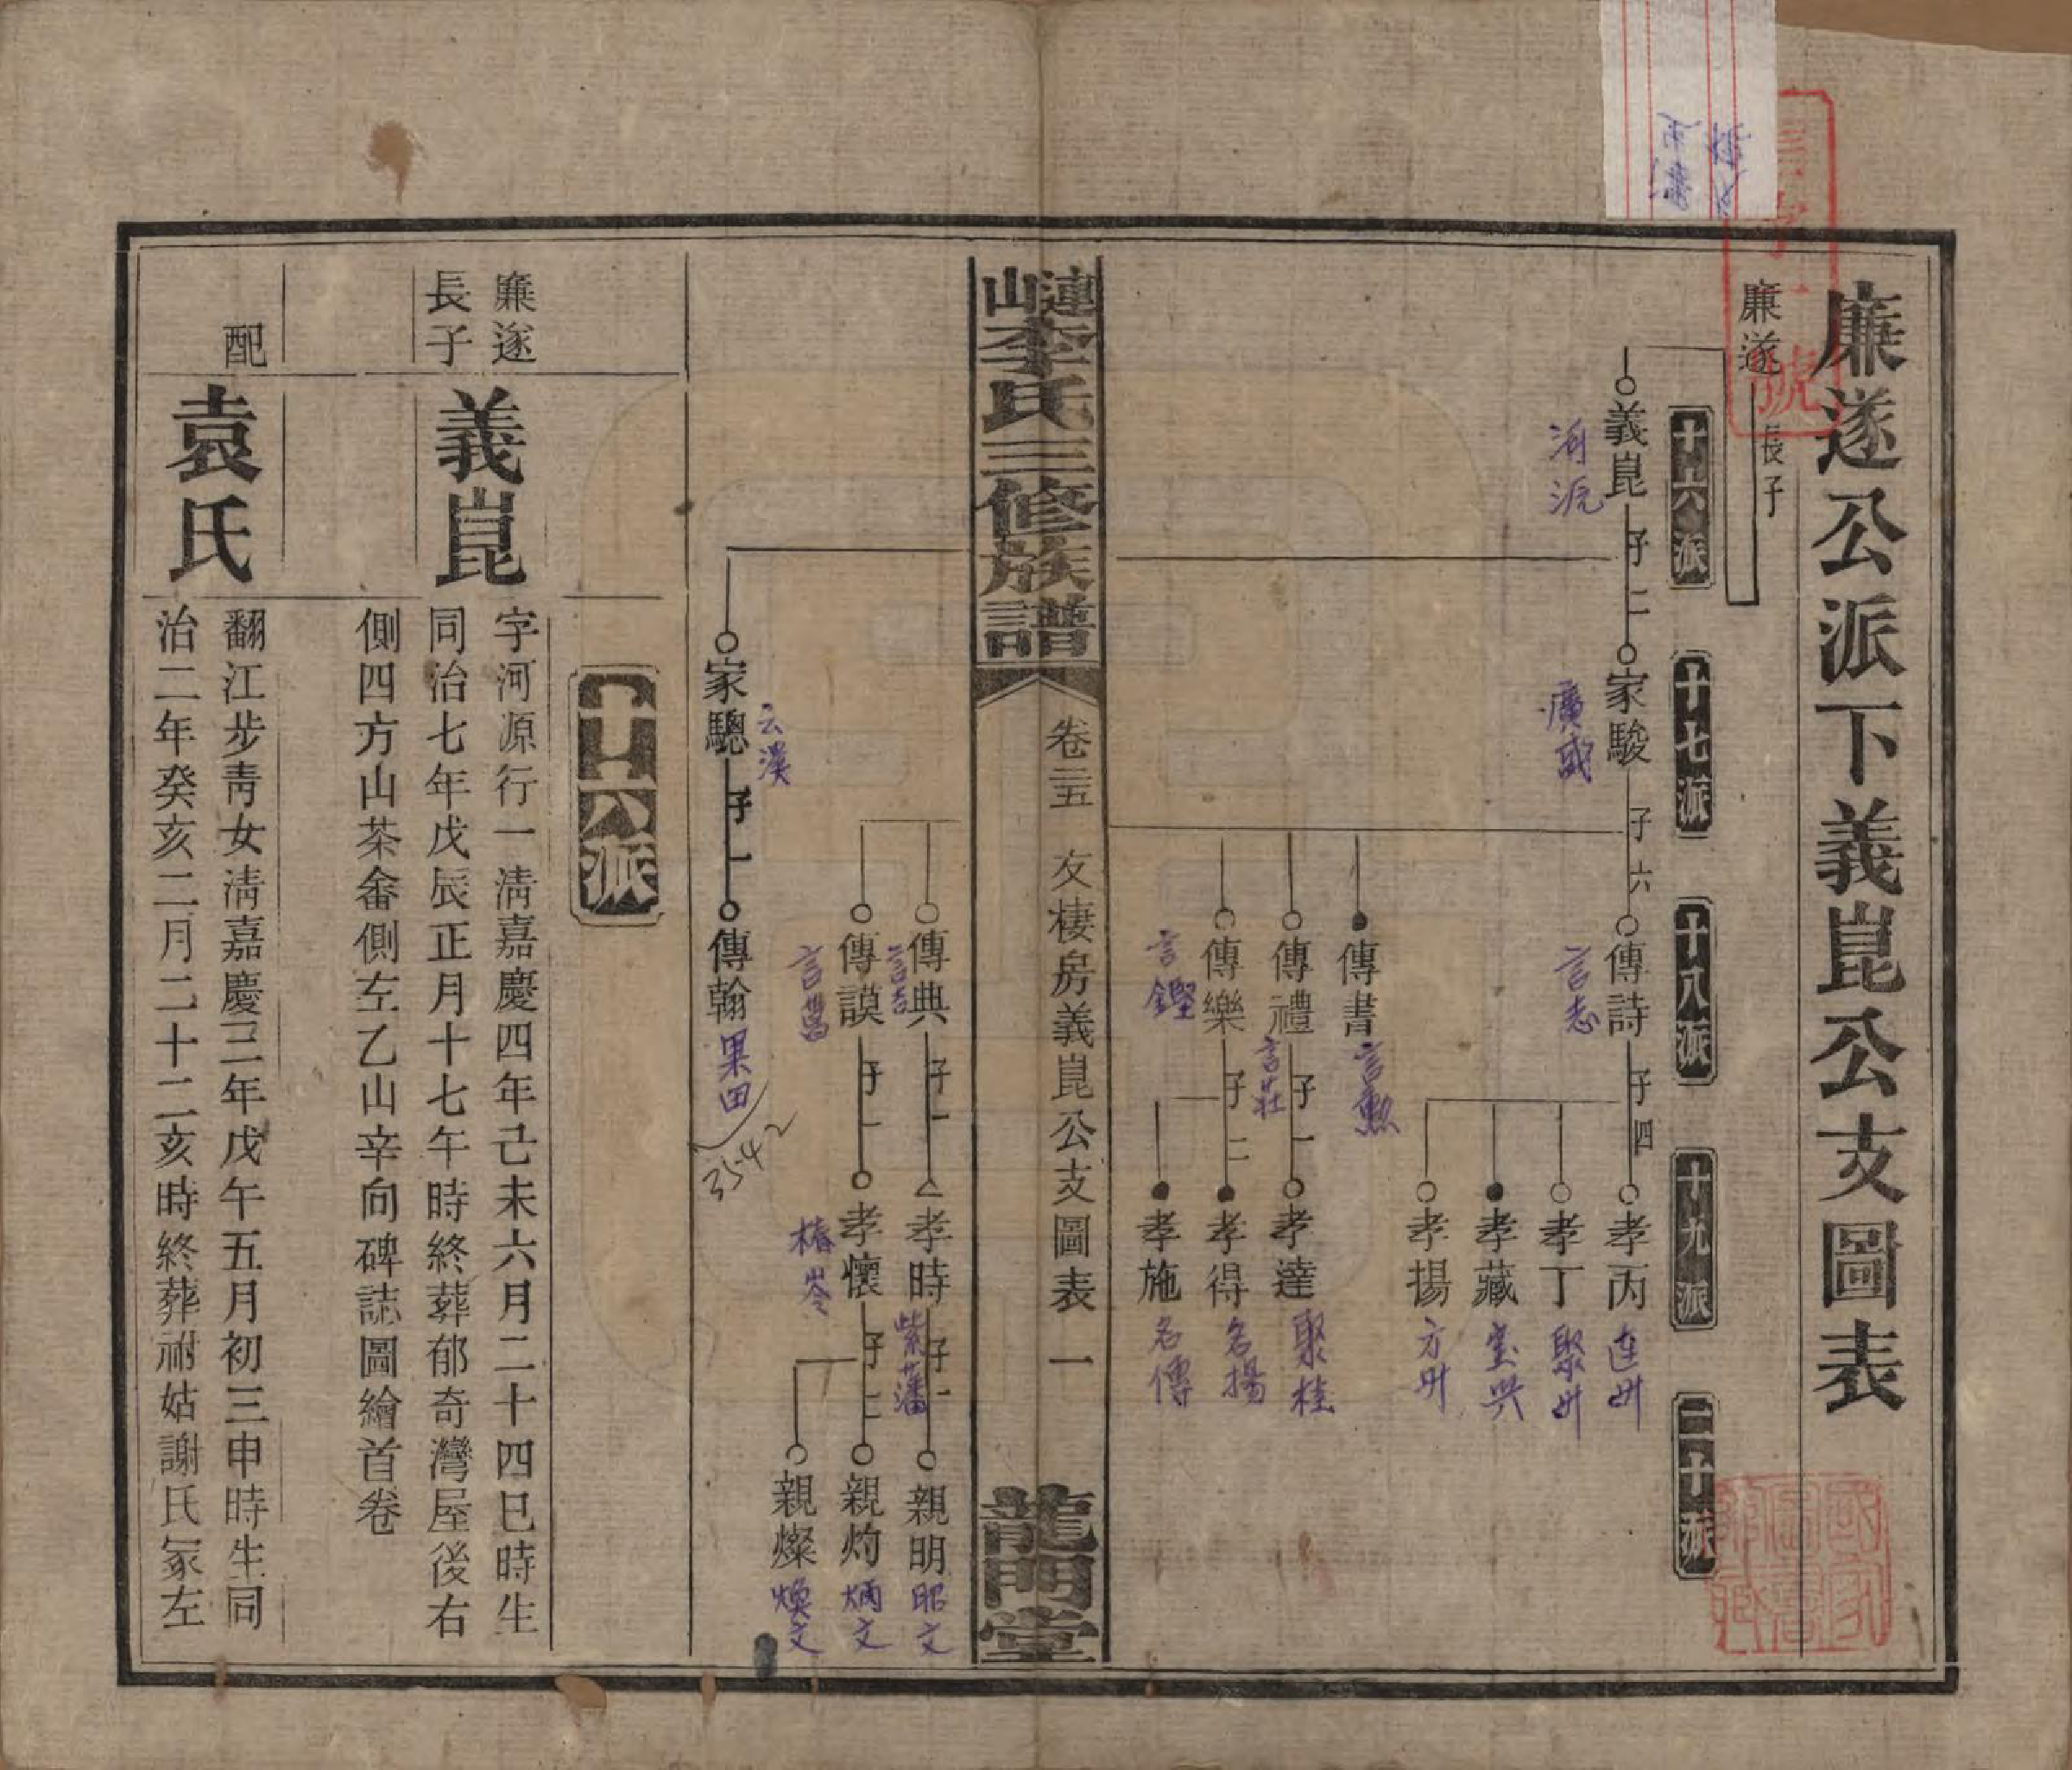 廉遂公派下義崑公支圖表
廉遂
長子
十六派
十七派
十八派
十九派
二十派
義崑 子二
家駿 子六
傳詩 子四
孝丙
孝丁
孝藏
孝揚
傳書
傳禮 子一
孝達
傳樂 子二
孝得
孝施
漣山李氏三修族譜
卷三五
友棲房義崑公支圖表
一
龍門堂
傳典 子一
孝時 子一
親明
傳謨 子一
孝懷 子二
親灼
親燦
家驄 子一
傳翰
河源
言志
言勲
言莊
言鏗
聚桂
名揚
名傳
言吉
言昌
云漢
果田
3542
紫藩
椿岺
昭文
炳文
煥文
十六派
廉遂
長子
義崑
字河源行一淸嘉慶四年己未六月二十四巳時生
同治七年戊辰正月十七午時終葬郁奇灣屋後右
側四方山茶畬側左乙山辛向碑誌圖繪首卷
配
袁氏
翻江步靑女淸嘉慶三年戊午五月初三申時生同
治二年癸亥二月二十二亥時終葬祔姑謝氏冢左